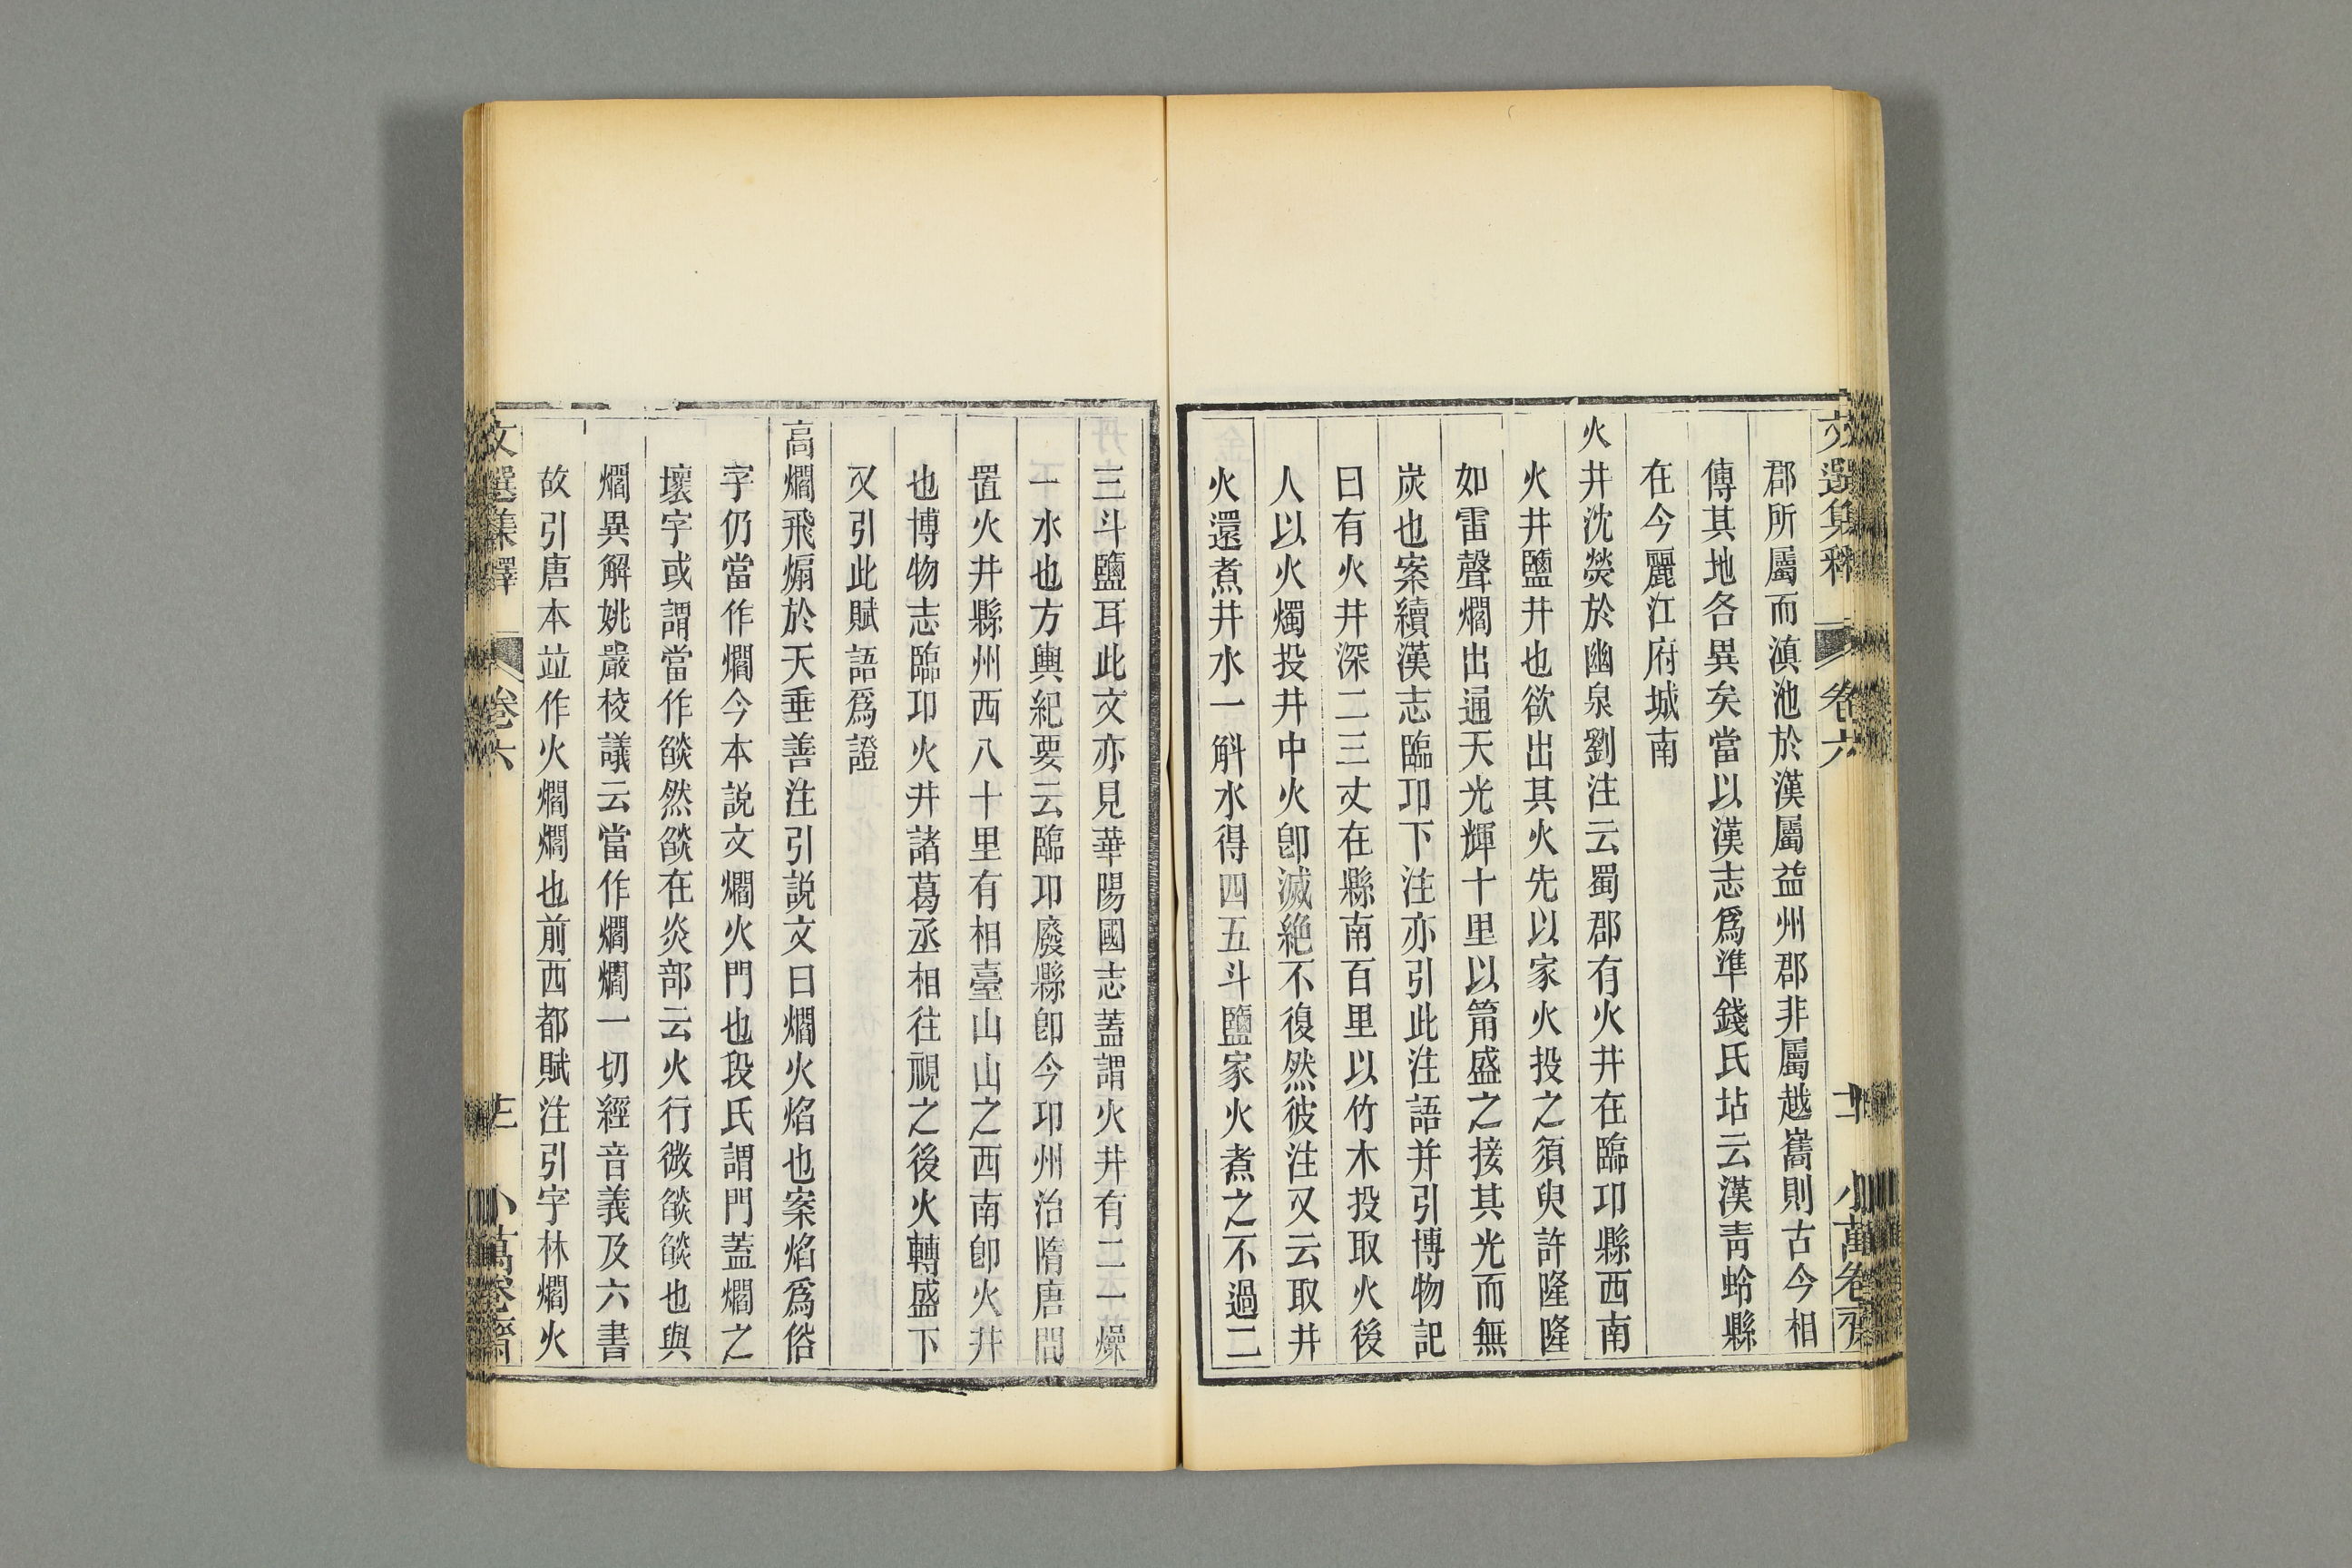 文選集釋 卷六 十二 小萬卷齋
郡所屬而滇池於漢屬益州郡非屬越嶲則古今相
傳其地各異矣當以漢志爲準錢氏坫云漢靑蛉縣
在今麗江府城南
火井沈熒於幽泉劉注云蜀郡有火井在臨卭縣西南
火井鹽井也欲出其火先以家火投之須臾許隆隆
如雷聲爓出通天光輝十里以筩盛之接其光而無
炭也案續漢志臨卭下注亦引此注語并引博物記
曰有火井深二三丈在縣南百里以竹木投取火後
人以火燭投井中火卽滅絕不復然彼注又云取井
火還煮井水一斛水得四五斗鹽家火煮之不過二
三斗鹽耳此文亦見華陽國志蓋謂火井有二一燥
一水也方輿紀要云臨卭廢縣卽今卭州治隋唐間
置火井縣州西八十里有相臺山山之西南卽火井
也博物志臨卭火井諸葛丞相往視之後火轉盛下
又引此賦語爲證
高爓飛煽於天垂善注引説文曰爓火焰也案焰爲俗
字仍當作爓今本説文爓火門也段氏謂門蓋爓之
壞字或謂當作燄然燄在炎部云火行微燄燄也與
爓異解姚嚴校議云當作爓爓一切經音義及六書
故引唐本竝作火爓爓也前西都賦注引字林爓火
文選集釋 卷六 小萬卷齋